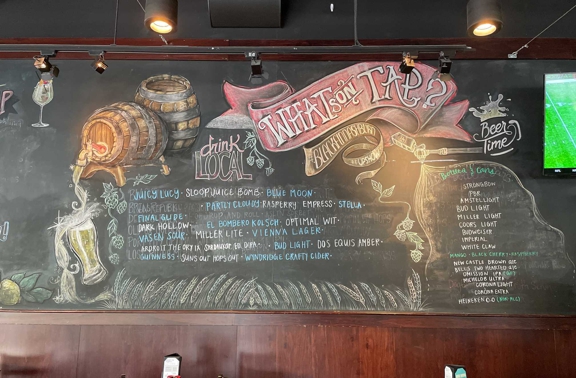 WHAT'S ON TAP?
drink
LOCAL
Beer
Time!
JUICY LUCY · SLOOP JUICE BOMB · BLUE MOON ·
PARTLY CLOUDY · RASPBERRY EMPRESS · STELLA ·
FINAL GLIDE
DARK HOLLOW · EL BOMBERO KOLSCH · OPTIMAL WIT ·
VASEN SOUR · MILLER LITE · VIENNA LAGER ·
BUD LIGHT · DOS EQUIS AMBER ·
GUINNESS · SUNS OUT HOPS OUT · WYNDRIDGE CRAFTY CIDER ·
STRONGBOW
PBR
AMSTEL LIGHT
BUD LIGHT
MILLER LIGHT
COORS LIGHT
BUDWEISER
IMPERIAL
WHITE CLAW
MANGO · BLACK CHERRY · RASPBERRY
NEW CASTLE BROWN ALE
BELLS TWO HEARTED ALE
OMISSION IPA
MICHELOB ULTRA
CORONA LIGHT
CORONA EXTRA
HEINEKEN 0.0 (NON ALC)